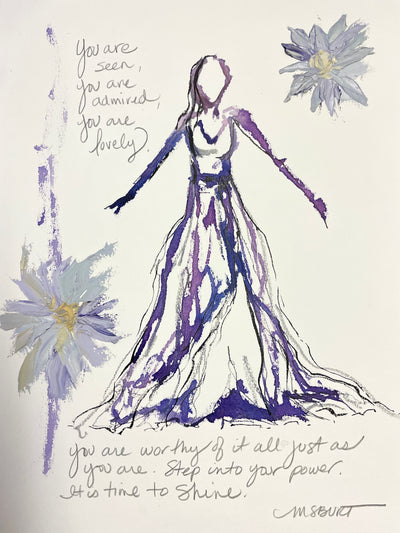 You are
seen,
you are
admired,
you are
lovely.
you are worthy of it all just as
you are. Step into your power.
It is time to Shine.
MSBURT